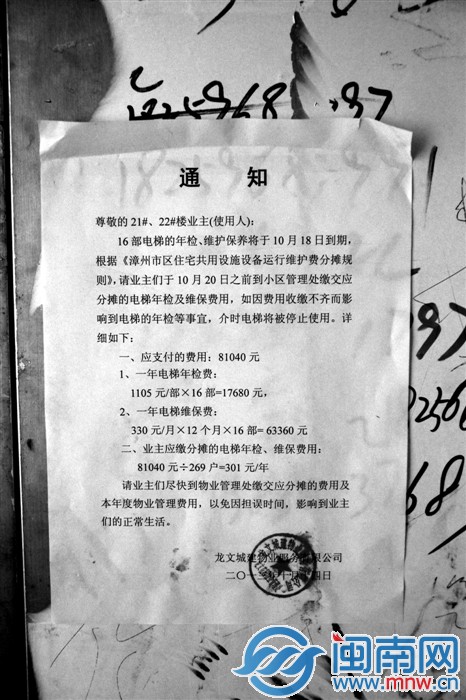 通 知
尊敬的 21#、22#楼业主(使用人):
16 部电梯的年检、维护保养将于 10 月 18 日到期,
根据《漳州市区住宅共用设施设备运行维护费分摊规
则》,请业主们于 10 月 20 日之前到小区管理处缴交应
分摊的电梯年检及维保费用,如因费用收缴不齐而影
响到电梯的年检等事宜,介时电梯将被停止使用。详
细如下:
一、应支付的费用:81040 元
1、一年电梯年检费:
1105 元/部×16 部=17680 元,
2、一年电梯维保费:
330 元/月×12 个月×16 部= 63360 元
二、业主应缴分摊的电梯年检、维保费用:
81040 元÷269 户=301 元/年
请业主们尽快到物业管理处缴交应分摊的费用及
本年度物业管理费用,以免因担误时间,影响到业主
们的正常生活。
龙文城建物业服务有限公司
二〇一三年十月十四日
闽南网
www.mnw.cn